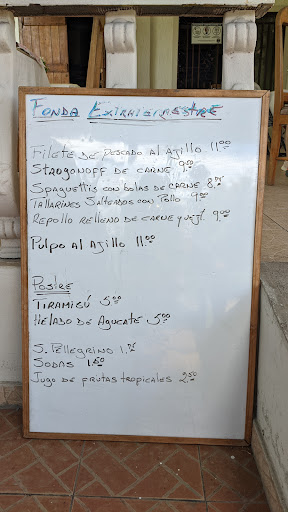 FONDA EXTRATERRESTRE
FILETE DE PESCADO AL AJILLO 11.00
STROGONOFF DE CARNE 9.50
SPAGUETTIS CON BOLAS DE CARNE 8.75
TALLARINES SALTEADOS CON POLLO 9.00
REPOLLO RELLENO DE CARNE Y VEJT 9.00
PULPO AL AJILLO 11.00
POSTRE
TIRAMIÇÚ 5.00
HELADO DE AGUCATE 5.00
S. PELLEGRINO 1.75
SODAS 1.50
JUGO DE FRUTAS TROPICALES 2.50